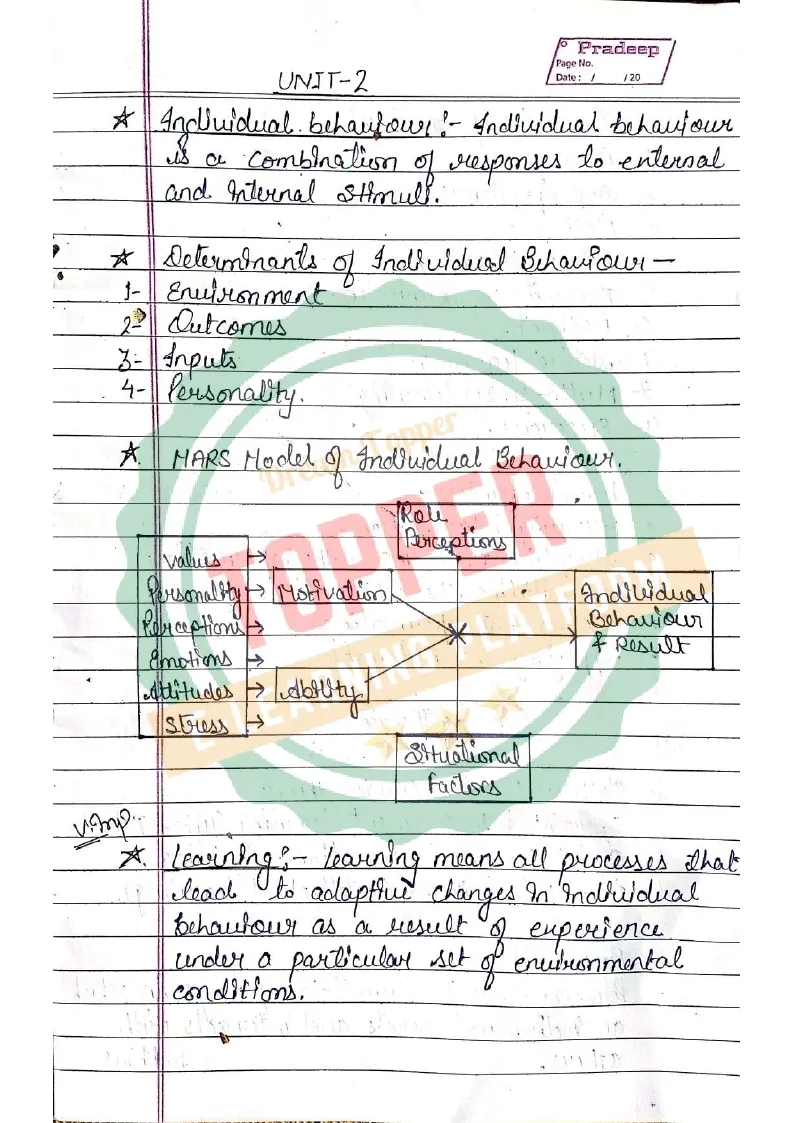 Pradeep
Page No.
Date: / /20
UNIT-2
☆ Individual behaviour :- Individual behaviour
is a combination of responses to external
and internal stimuli.
☆ Determinants of Individual Behaviour —
1- Environment
2- Outcomes
3- Inputs
4- Personality.
☆ MARS Model of Individual Behaviour.
Role
Perceptions
Values →
Personality → Motivation
Perceptions →
Emotions →
Attitudes → Ability
Stress →
Individual
Behaviour
& Result
Situational
factors
V.Imp.
☆ Learning :- learning means all processes that
lead to adaptive changes in individual
behaviour as a result of experience
under a particular set of environmental
conditions.
Dream Topper
TOPPER
E-LEARNING PLATFORM